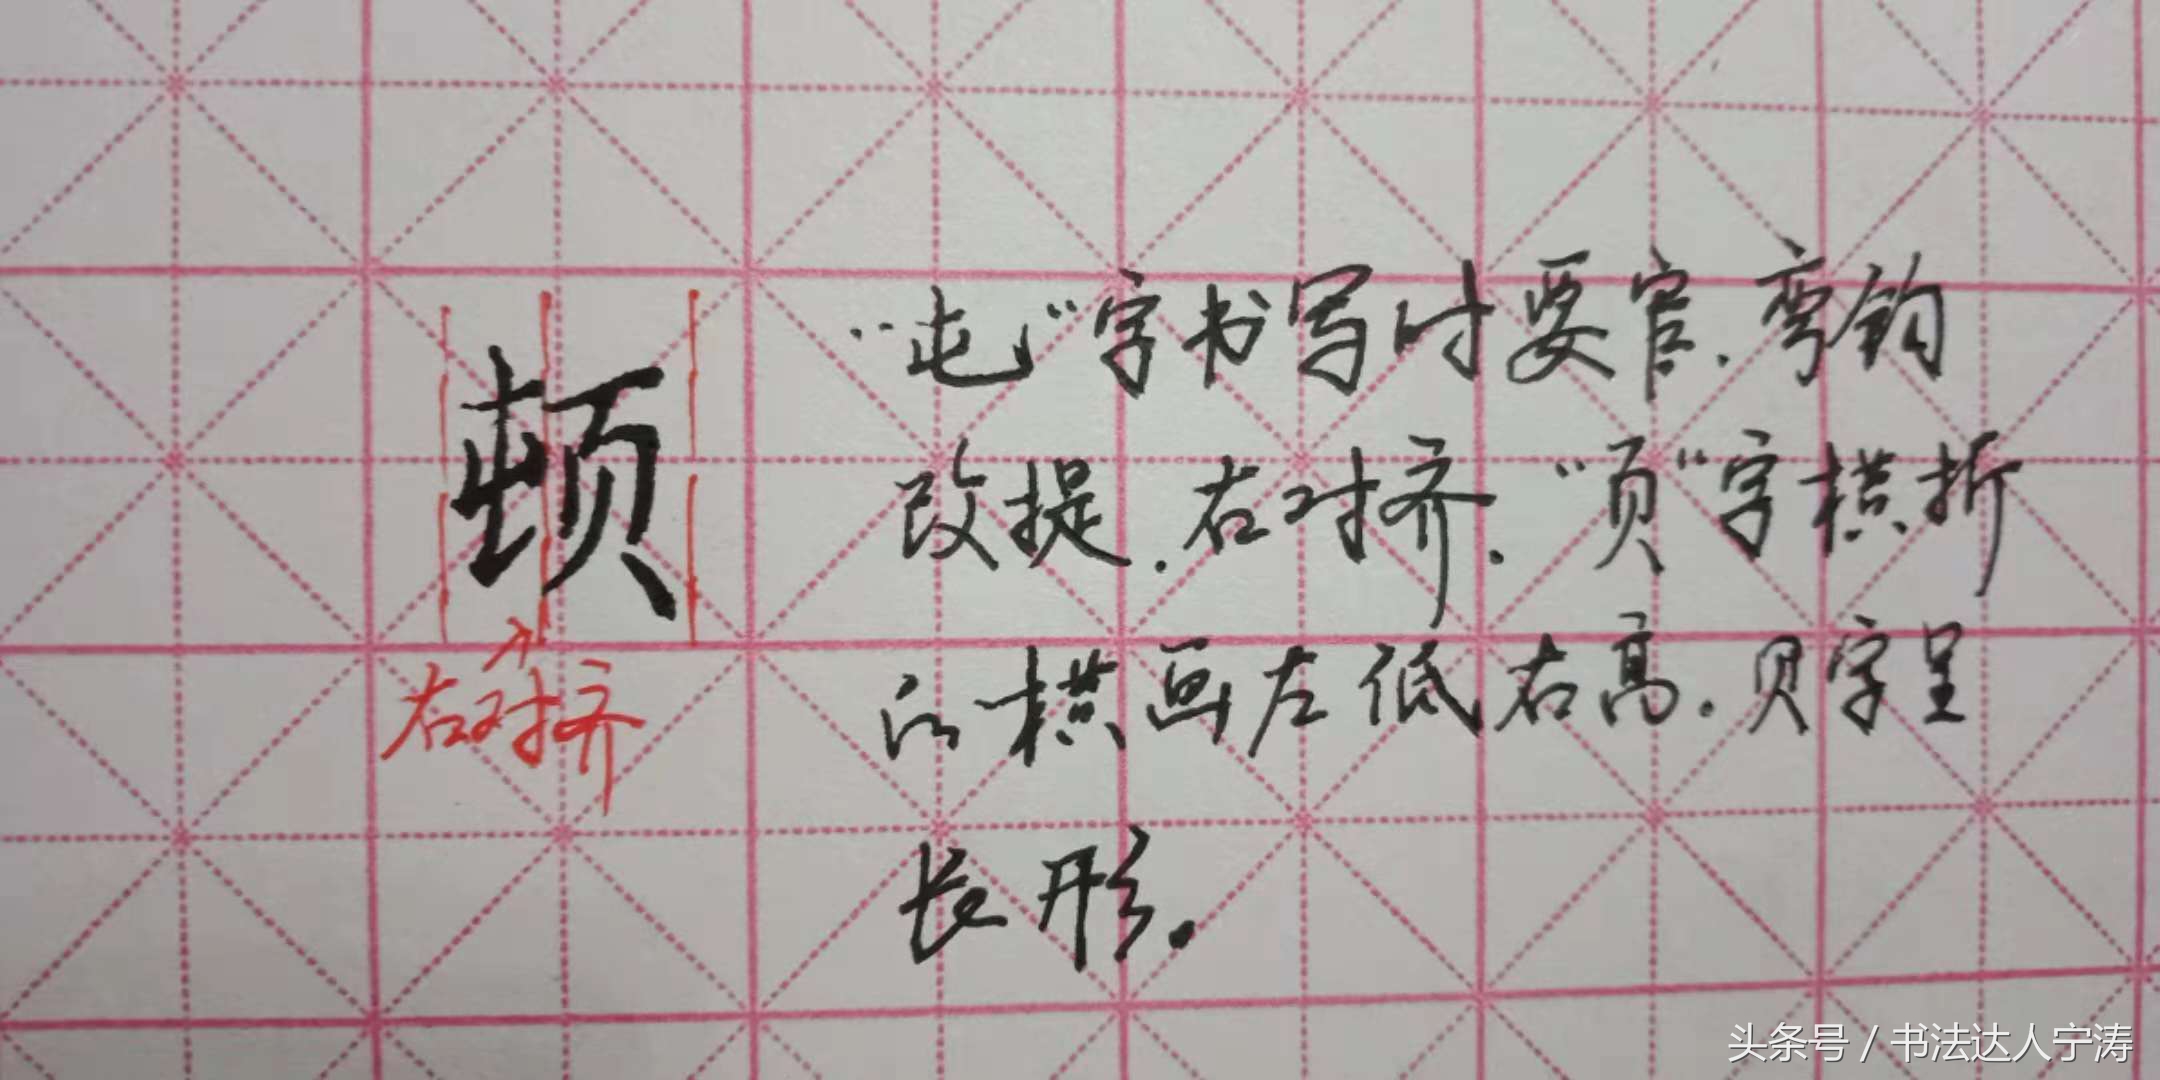 顿
右对齐
"屯"字书写时要窄.弯钩
改提.右对齐."页"字横折
的横画左低右高.贝字呈
长形.
头条号 / 书法达人宁涛